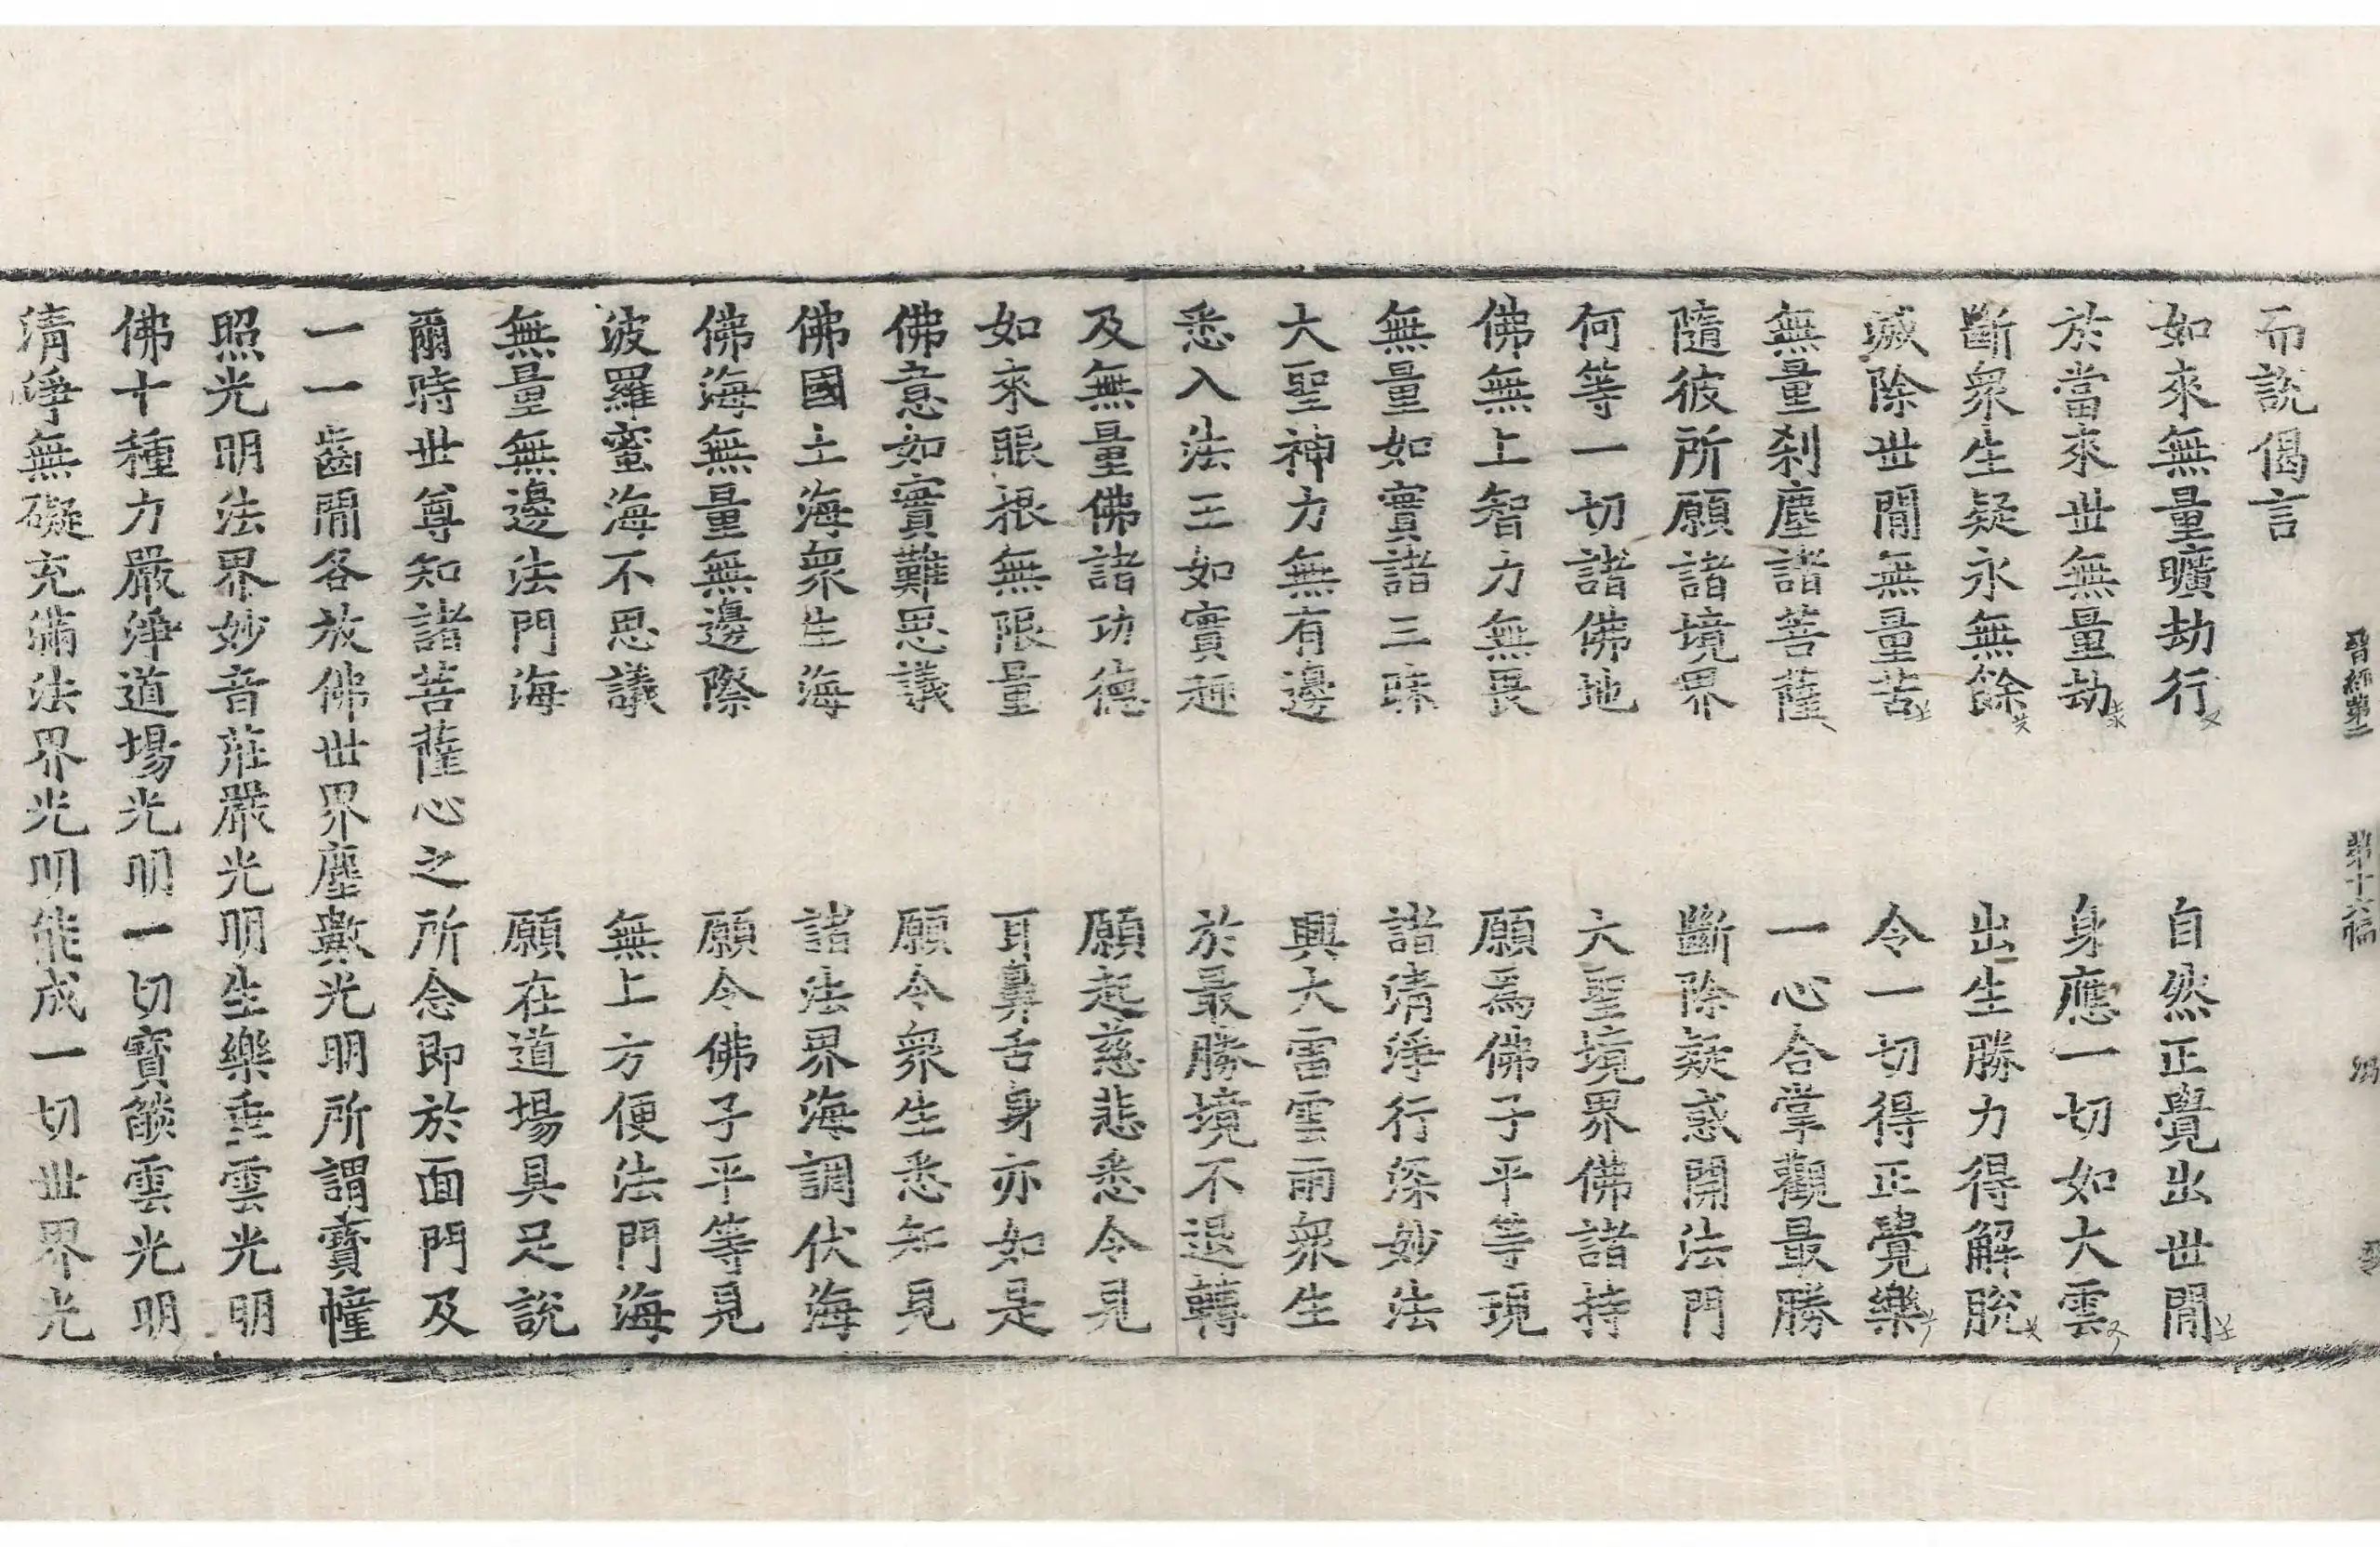 晉經第二 第十六幅
而說偈言
如來無量曠劫行 自然正覺出世閒
於當來世無量劫 身應一切如大雲
斷衆生疑永無餘 出生勝力得解脫
滅除世閒無量苦 令一切得正覺樂
無量刹塵諸菩薩 一心合掌觀最勝
隨彼所願諸境界 斷除疑惑開法門
何等一切諸佛地 大聖境界佛諸持
佛無上智力無畏 願爲佛子平等現
無量如實諸三昧 諸清淨行深妙法
大聖神力無有邊 興大雷雲雨衆生
悉入法王如實趣 於最勝境不退轉
及無量佛諸功德 願起慈悲悉令見
如來眼根無限量 耳鼻舌身亦如是
佛意如實難思議 願令衆生悉知見
佛國土海衆生海 諸法界海調伏海
佛海無量無邊際 願令佛子平等見
波羅蜜海不思議 無上方便法門海
無量無邊法門海 願在道場具足說
爾時世尊知諸菩薩心之所念即於面門及
一一齒閒各放佛世界塵數光明所謂寶幢
照光明法界妙音莊嚴光明生樂垂雲光明
佛十種力嚴淨道場光明一切寶燄雲光明
清淨無礙充滿法界光明能成一切世界光